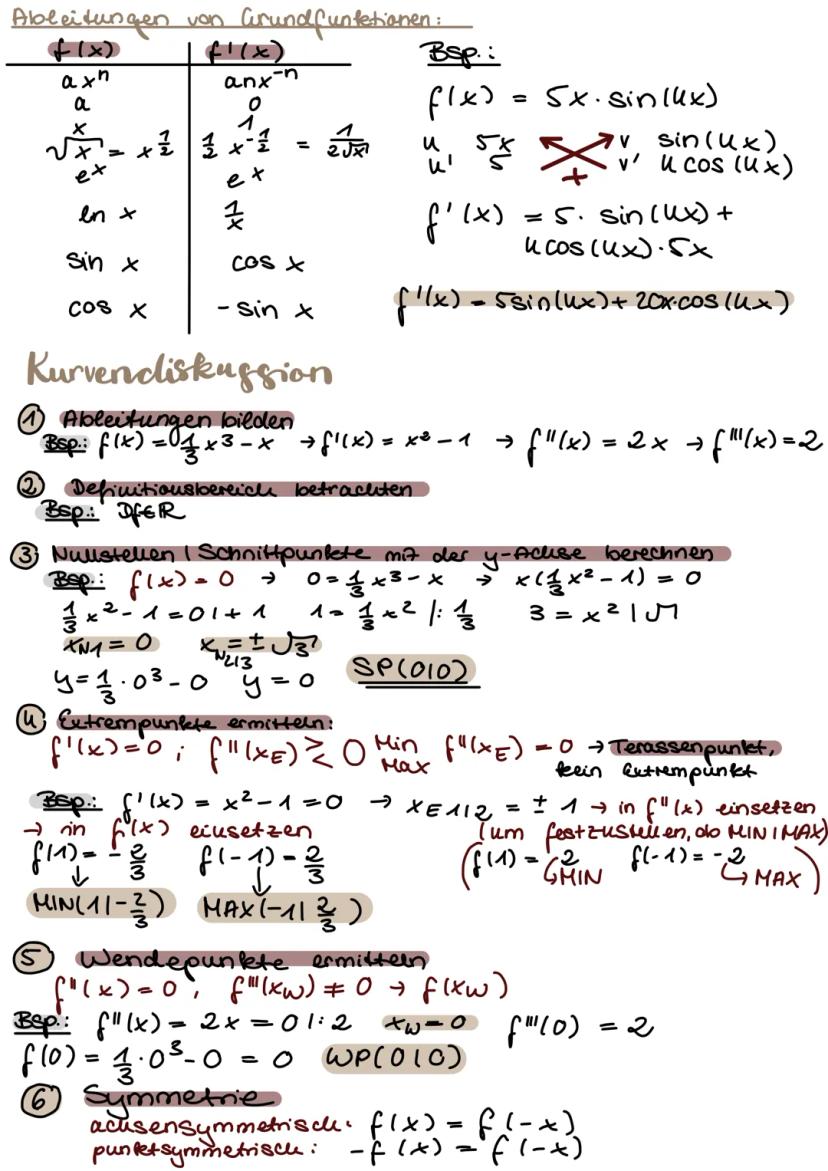 Ableitungen von Grundfunktionen:
f(x) f'(x)
ax^n anx^-n
a 0
x 1
√x = x^1/2 1/2 x^-1/2 = 1/(2√x)
e^x e^x
ln x 1/x
sin x cos x
cos x - sin x
Bsp.:
f(x) = 5x · sin(4x)
u 5x v sin(4x)
u' 5 + v' 4 cos(4x)
f'(x) = 5 · sin(4x) +
4cos(4x) · 5x
f'(x) = 5sin(4x) + 20x·cos(4x)
Kurvendiskussion
1 Ableitungen bilden
Bsp.: f(x) = 1/3 x³ - x → f'(x) = x² - 1 → f''(x) = 2x → f'''(x) = 2
2 Definitionsbereich betrachten
Bsp.: Df∈R
3 Nullstellen | Schnittpunkte mit der y-Achse berechnen
Bsp.: f(x) = 0 → 0 = 1/3 x³ - x → x(1/3 x² - 1) = 0
1/3 x² - 1 = 0 | + 1 1 = 1/3 x² | : 1/3 3 = x² | √
xN1 = 0 xN2/3 = ± √3
y = 1/3 · 0³ - 0 y = 0 SP(0|0)
4 Extrempunkte ermitteln:
f'(x) = 0 ; f''(xE) ≷ 0 Min Max f''(xE) = 0 → Terassenpunkt,
kein Extrempunkt
Bsp.: f'(x) = x² - 1 = 0 → xE1|2 = ± 1 → in f''(x) einsetzen
→ in f'(x) einsetzen (um festzustellen, ob MIN|MAX)
f(1) = - 2/3 f(-1) = 2/3 (f(1) = 2 f(-1) = -2
↳ MIN ↳ MAX)
MIN(1|-2/3) MAX(-1|2/3)
5 Wendepunkte ermitteln
f''(x) = 0, f'''(xW) ≠ 0 → f(xW)
Bsp.: f''(x) = 2x = 0 | : 2 xW = 0 f'''(0) = 2
f(0) = 1/3 · 0³ - 0 = 0 WP(0|0)
6 Symmetrie
achsensymmetrisch: f(x) = f(-x)
punktsymmetrisch: -f(x) = f(-x)